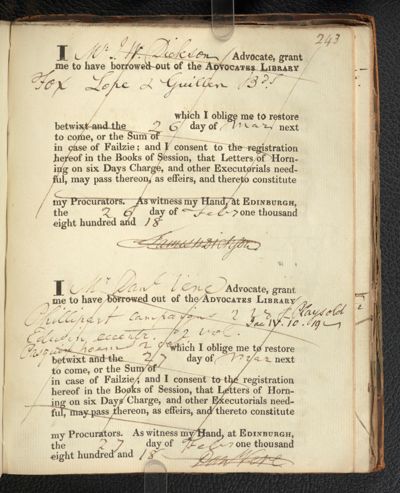 243
I Mr J. W. Dickson Advocate, grant
me to have borrowed out of the ADVOCATES LIBRARY
Fox Lope & Guillen
which I oblige me to restore
betwixt and the 26 day of Mar next
to come, or the Sum of
in case of Failzie; and I consent to the registration
hereof in the Books of Session, that Letters of Horn-
ing on six Days Charge, and other Executorials need-
ful, may pass thereon, as effeirs, and thereto constitute
my Procurators. As witness my Hand, at EDINBURGH,
the 26 day of Febr one thousand
eight hundred and 18
I Mr Danl Vere Advocate, grant
me to have borrowed out of the ADVOCATES LIBRARY
Phillipart campaigns 2
2 vol.
which I oblige me to restore
betwixt and the 27 day of Mar next
to come, or the Sum of
in case of Failzie; and I consent to the registration
hereof in the Books of Session, that Letters of Horn-
ing on six Days Charge, and other Executorials need-
ful, may pass thereon, as effeirs, and thereto constitute
my Procurators. As witness my Hand, at EDINBURGH,
the 27 day of Febr one thousand
eight hundred and 18
Dan Vere